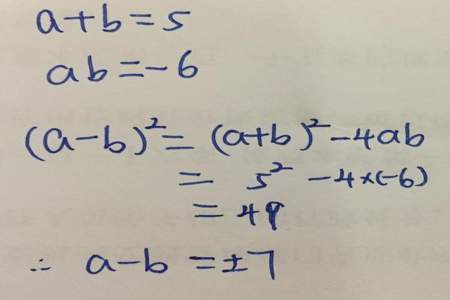 a+b=5
ab=-6
(a-b)²=(a+b)²-4ab
= 5²-4×(-6)
= 49
∴ a-b=±7